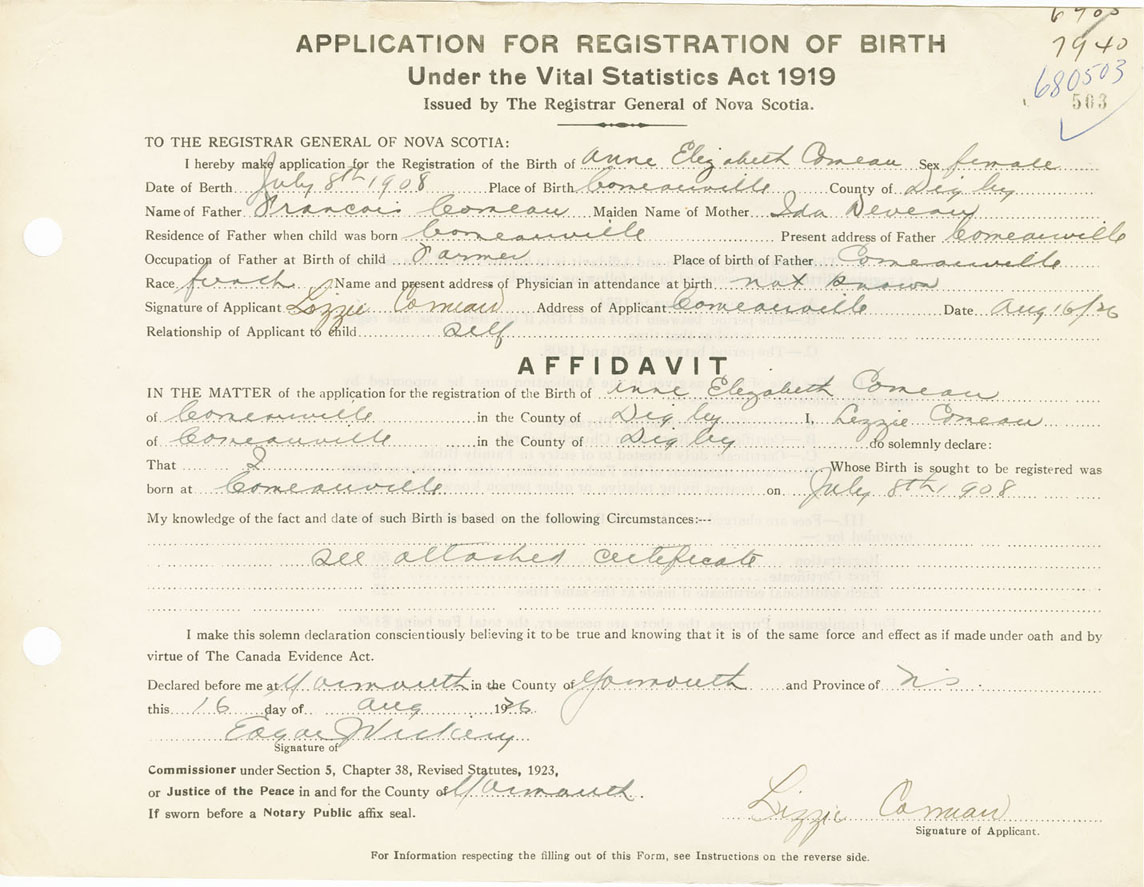 7940
680503
503
APPLICATION FOR REGISTRATION OF BIRTH
Under the Vital Statistics Act 1919
Issued by The Registrar General of Nova Scotia.
TO THE REGISTRAR GENERAL OF NOVA SCOTIA:
I hereby make application for the Registration of the Birth of Anne Elizabeth Comeau Sex female
Date of Berth July 8th 1908 Place of Birth Comeauville County of Digby
Name of Father Francois Comeau Maiden Name of Mother Ida Deveau
Residence of Father when child was born Comeauville Present address of Father Comeauville
Occupation of Father at Birth of child Farmer Place of birth of Father Comeauville
Race french Name and present address of Physician in attendance at birth not known
Signature of Applicant Lizzie Comeau Address of Applicant Comeauville Date Aug 16/26
Relationship of Applicant to child self
AFFIDAVIT
IN THE MATTER of the application for the registration of the Birth of Anne Elizabeth Comeau
of Comeauville in the County of Digby I, Lizzie Comeau
of Comeauville in the County of Digby do solemnly declare:
That I Whose Birth is sought to be registered was
born at Comeauville on July 8th 1908
My knowledge of the fact and date of such Birth is based on the following Circumstances:---
see attached certificate
I make this solemn declaration conscientiously believing it to be true and knowing that it is of the same force and effect as if made under oath and by
virtue of The Canada Evidence Act.
Declared before me at Yarmouth in the County of Yarmouth and Province of NS.
this 16 day of Aug 1926
Edgar J Vickery
Signature of
Commissioner under Section 5, Chapter 38, Revised Statutes, 1923,
or Justice of the Peace in and for the County of Yarmouth.
If sworn before a Notary Public affix seal.
Lizzie Comeau
Signature of Applicant.
For Information respecting the filling out of this Form, see Instructions on the reverse side.